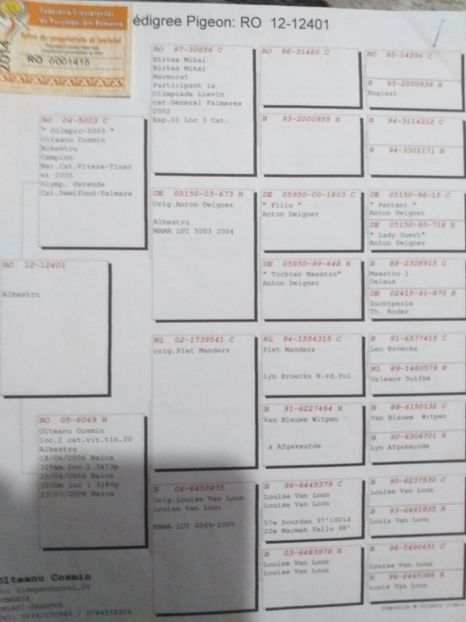 Federatia Crescatorilor
de Porumbei din Romania
2014
RO 0001415
édigree Pigeon: RO 12-12401
RO 12-12401
Albastru
RO 04-5003 C
" Olimpic-5003 "
Olteanu Cosmin
Albastru
Campion
Nat.Cat.Viteza-Tiner
et 2005
Olymp. Ostende
Cat.Demifond-Palmare
RO 05-6049 H
Olteanu Cosmin
loc.2 cat.vit.tin.20
Albastru
18/06/2006 Baica
25/06/2006 Baica
23/07/2006 Baica
RO 97-30856 C
Birtea Mihai
Birtea Mihai
Marmurat
Participant La
Olimpiada Lievin
cat.General Palmares
2002
Exp.01 Loc 3 Cat.
DE 05150-03-673 H
Orig.Anton Deigner
Albastru
MAMA LUI 5003 2004
NL 02-1739541 C
orig.Piet Manders
B 04-6453975
Orig.Louise Van Loon
Louise Van Loon
MAMA LUI 6049-2005
RO 96-31460 C
B 93-2000955 H
DE 05950-00-1803 C
" Filiu "
Anton Deigner
DE 05950-99-648 H
" Tochter Maestro"
Anton Deigner
NL 94-1554315 C
Piet Manders
Lyn Broeckx N.vd.Pol
B 91-6227464 H
Van Blauwe Witpen
x Afgekeurde
B 96-6445379 C
Louise Van Loon
Louise Van Loon
57e Dourdan 97'1001d
22e Marneh Vallu 98'
B 03-6483976 H
Louise Van Loon
Louise Van Loon
RO 95-14296 C
B 93-2000938 H
Englezi
B 94-3114212 C
B 94-3301171 H
DE 05150-96-15 C
" Pantani "
Anton Deigner
DE 05150-95-718 H
" Lady Guert"
Anton Deigner
B 88-2328915 C
Maestro 1
Deleus
DE 02415-91-870 H
Zuchtperle
Th. Roder
B 91-6577415 C
Leo Broeckx
NL 89-1460579 H
Orleans Duifke
B 89-6150132 C
Van Blauwe Witpen
B 90-6306701 H
Lyn Afgekeurde
B 90-6237530 C
Louise Van Loon
B 93-6491935 H
Louis Van Loon
B 96-5490451 C
Louise Van Loon
B 96-6445366 H
Louis Van Loon
Olteanu Cosmin